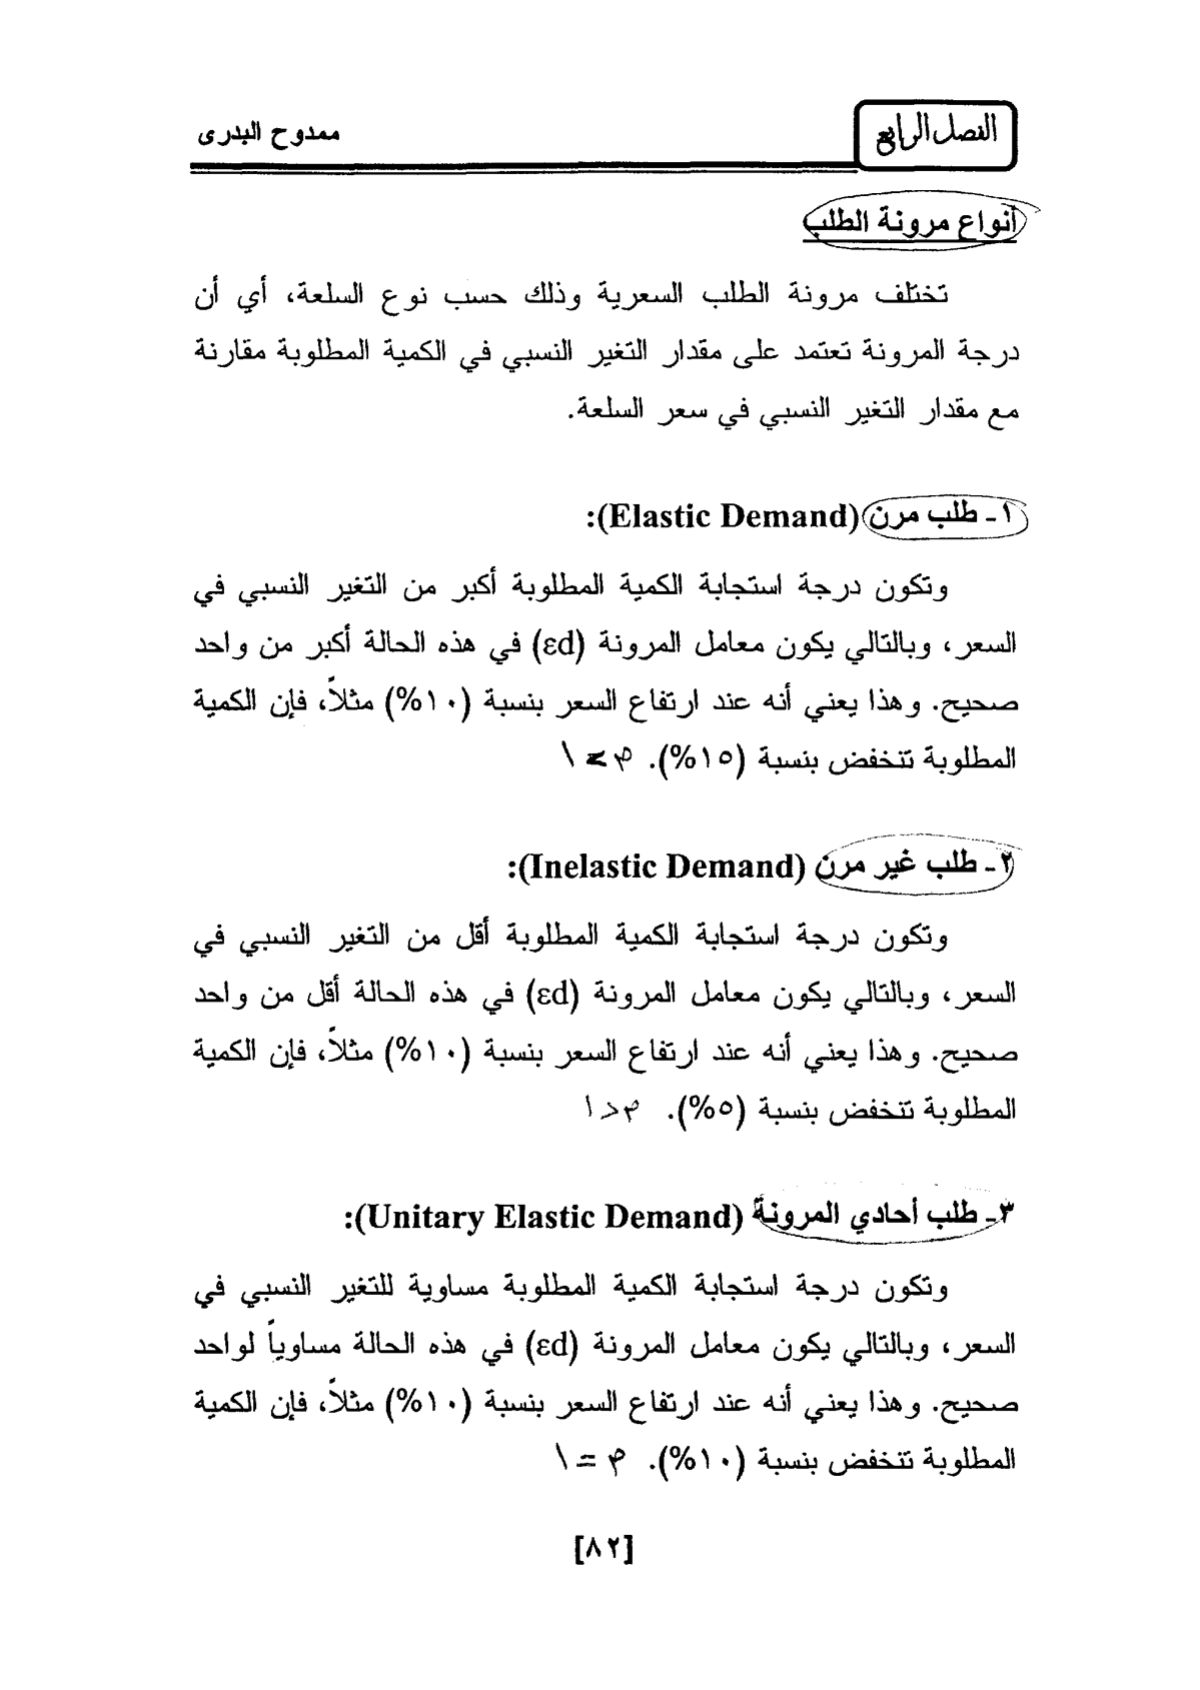 الفصل الرابع
ممدوح البدرى
أنواع مرونة الطلب
تختلف مرونة الطلب السعرية وذلك حسب نوع السلعة، أي أن
درجة المرونة تعتمد على مقدار التغير النسبي في الكمية المطلوبة مقارنة
مع مقدار التغير النسبي في سعر السلعة.
١- طلب مرن (Elastic Demand):
وتكون درجة استجابة الكمية المطلوبة أكبر من التغير النسبي في
السعر، وبالتالي يكون معامل المرونة (εd) في هذه الحالة أكبر من واحد
صحيح. وهذا يعني أنه عند ارتفاع السعر بنسبة (١٠%) مثلاً، فإن الكمية
المطلوبة تنخفض بنسبة (١٥%). م > ١
٢- طلب غير مرن (Inelastic Demand):
وتكون درجة استجابة الكمية المطلوبة أقل من التغير النسبي في
السعر، وبالتالي يكون معامل المرونة (εd) في هذه الحالة أقل من واحد
صحيح. وهذا يعني أنه عند ارتفاع السعر بنسبة (١٠%) مثلاً، فإن الكمية
المطلوبة تنخفض بنسبة (٥%). م < ١
٣- طلب أحادي المرونة (Unitary Elastic Demand):
وتكون درجة استجابة الكمية المطلوبة مساوية للتغير النسبي في
السعر، وبالتالي يكون معامل المرونة (εd) في هذه الحالة مساوياً لواحد
صحيح. وهذا يعني أنه عند ارتفاع السعر بنسبة (١٠%) مثلاً، فإن الكمية
المطلوبة تنخفض بنسبة (١٠%). م = ١
[٨٢]